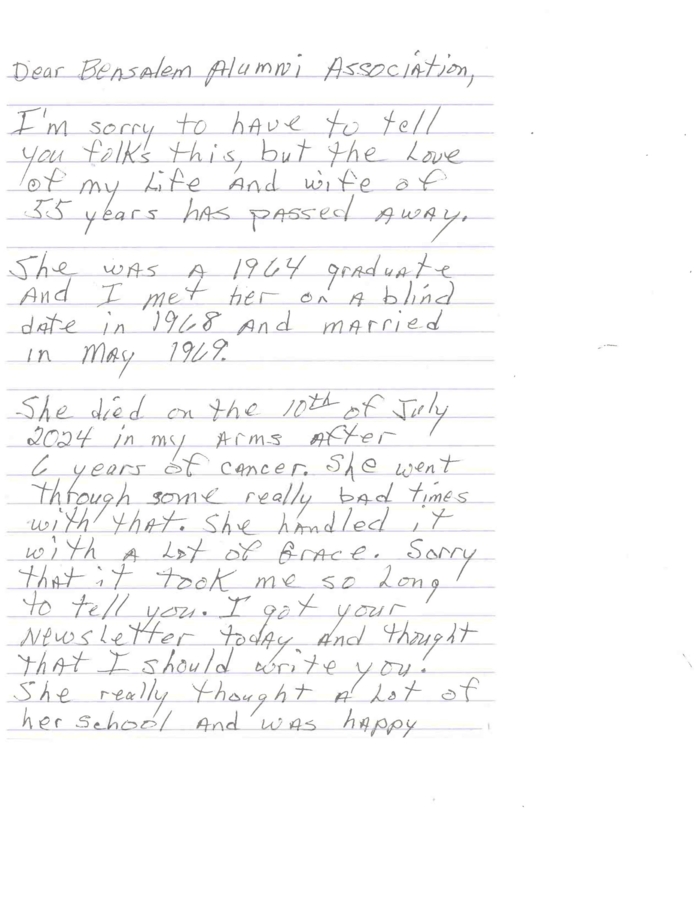 Dear Bensalem Alumni Association,
I'm sorry to have to tell
you folks this, but the Love
of my Life and wife of
55 years has passed away.
She was a 1964 graduate
And I met her on a blind
date in 1968 and married
in May 1969.
She died on the 10th of July
2024 in my Arms After
6 years of cancer. She went
through some really bad times
with that. She handled it
with a Lot of Grace. Sorry
that it took me so Long
to tell you. I got your
Newsletter today and thought
that I should write you.
She really thought a Lot of
her school and was happy